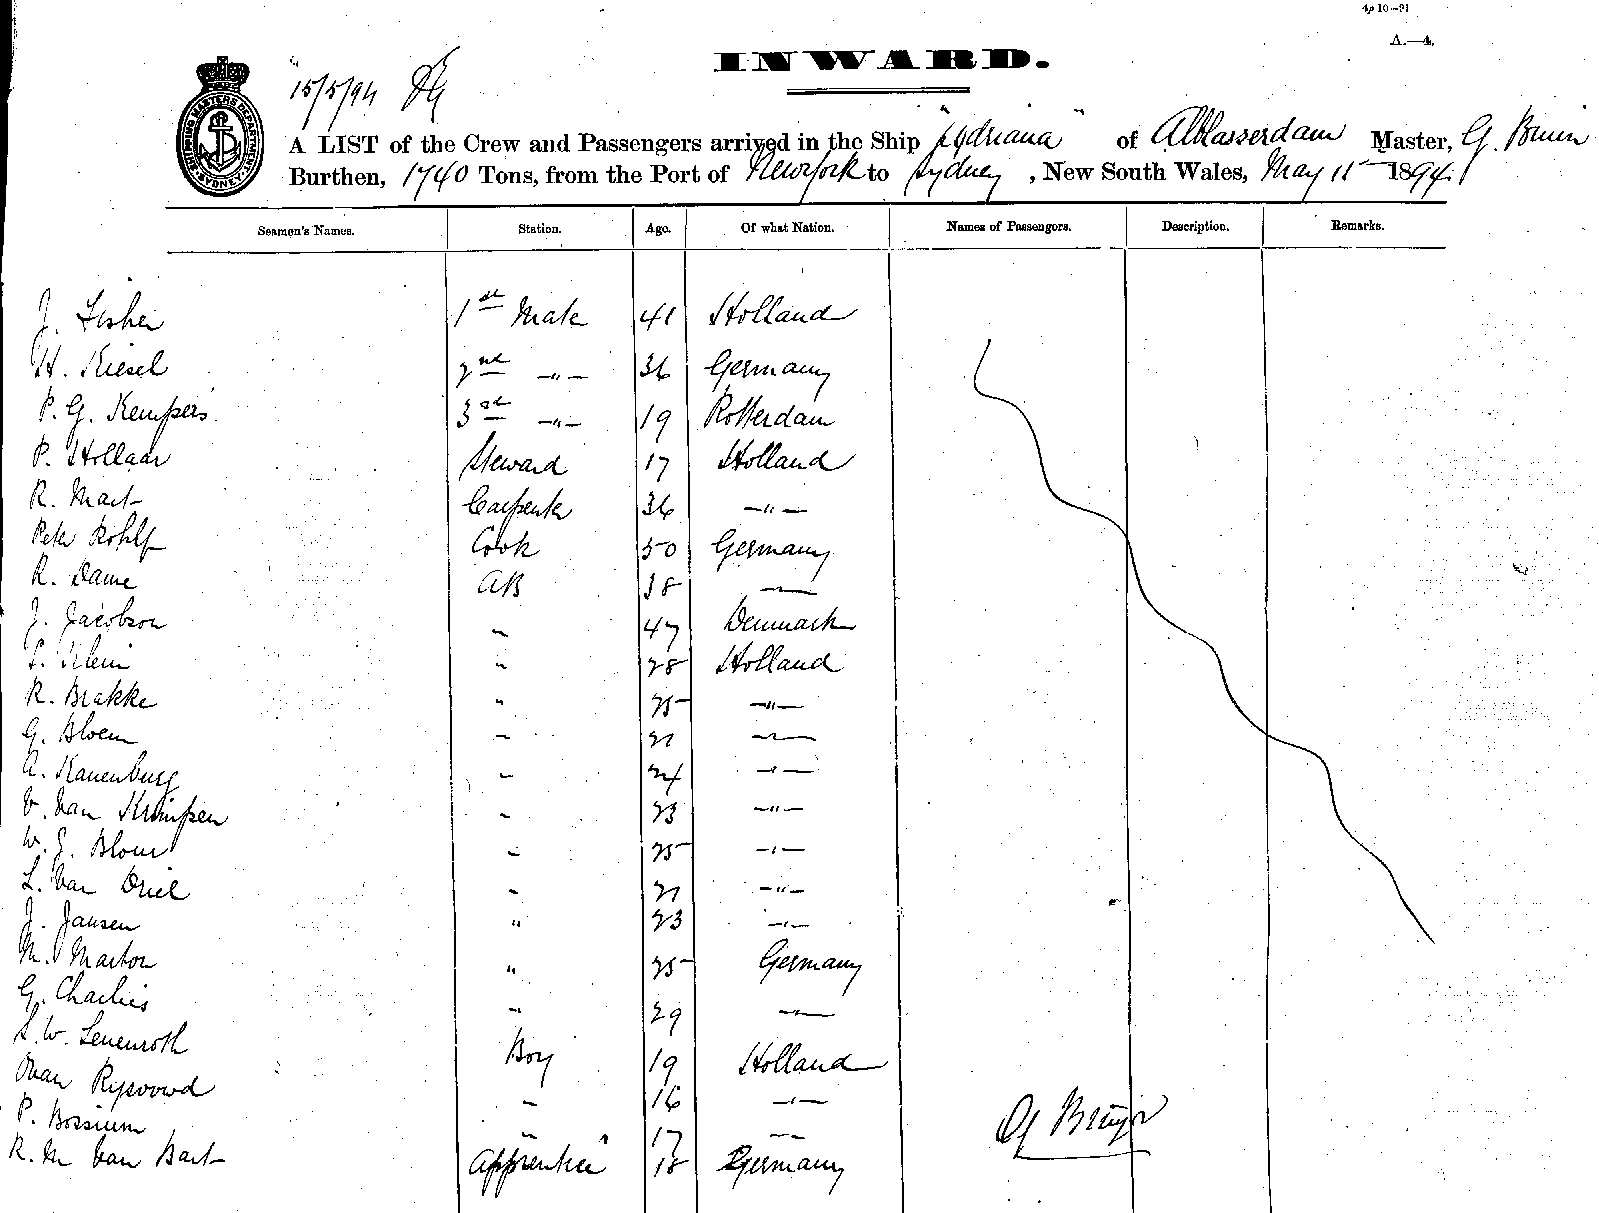 4p 10—91
A.—4.
INWARD.
15/5/94
SHIPPING MASTERS DEPARTMENT SYDNEY
A LIST of the Crew and Passengers arrived in the Ship "Adriana" of Alblasserdam Master, G. Bruin
Burthen, 1740 Tons, from the Port of New York to Sydney, New South Wales, May 11 1894
Seamen's Names. Station. Age. Of what Nation. Names of Passengers. Description. Remarks.
J. Fisher 1st Mate 41 Holland
H. Kiesel 2nd —"— 36 Germany
P. G. Kempers 3rd —"— 19 Rotterdam
P. Hollaar Steward 17 Holland
R. Mart Carpenter 36 —"—
Peter Rohlf Cook 50 Germany
R. Dame AB 38 —"—
J. Jacobson " 47 Denmark
Klein " 28 Holland
R. Brakke " 25 —"—
G. Bloem " 21 —"—
A. Kanenburg " 24 —"—
V. Van Krimpen " 23 —"—
W. J. Blom " 25 —"—
L. Van Driel " 21 —"—
J. Jansen " 23 —"—
M. Marton " 25 Germany
G. Charlies " 29 —"—
S. W. Lenenroth Boy 19 Holland
Rysoord " 16 —"—
P. Bossium " 17 —"—
R. M Van Bart Apprentice 18 Germany